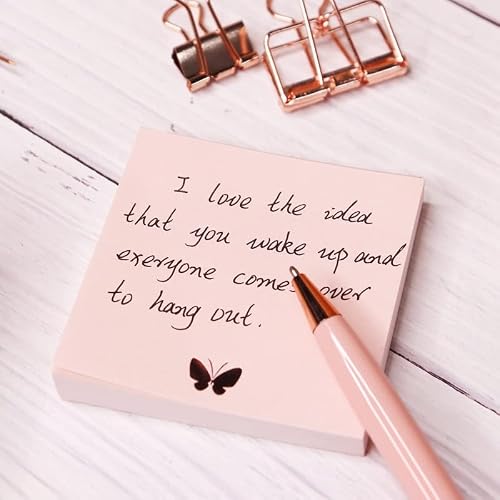 I love the idea
that you wake up and
everyone comes over
to hang out.